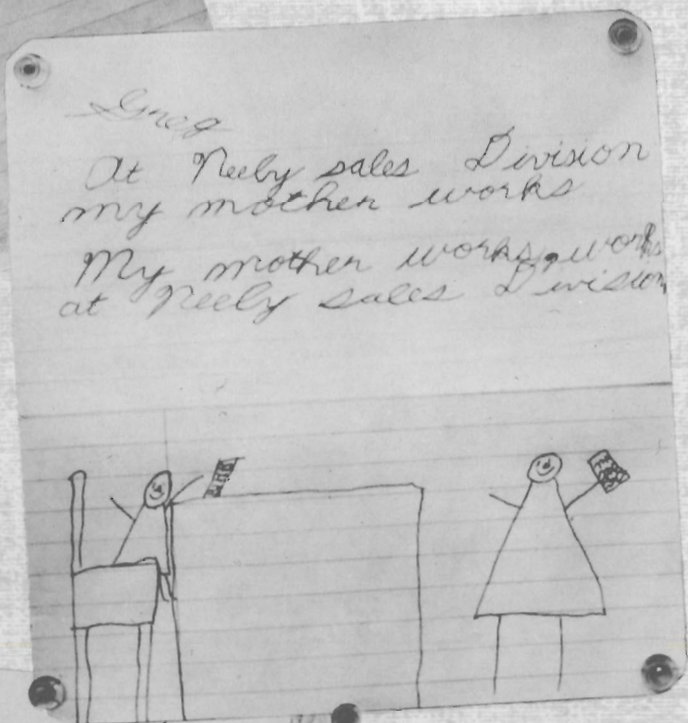 Greg
At Neely sales Division
my mother works
My mother works, works
at Neely sales Division